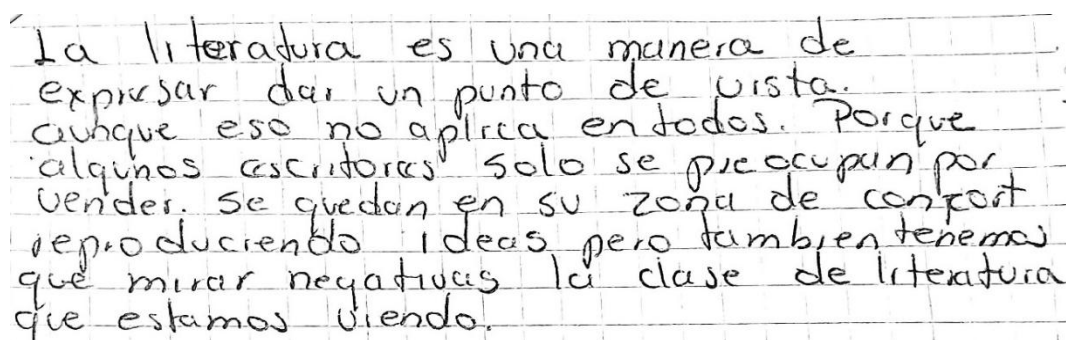 La literatura es una manera de
expresar dar un punto de vista.
aunque eso no aplica en todos. Porque
algunos escritores solo se preocupan por
vender. Se quedan en su zona de confort
reproduciendo ideas pero tambien tenemos
que mirar negativas la clase de literatura
que estamos viendo.